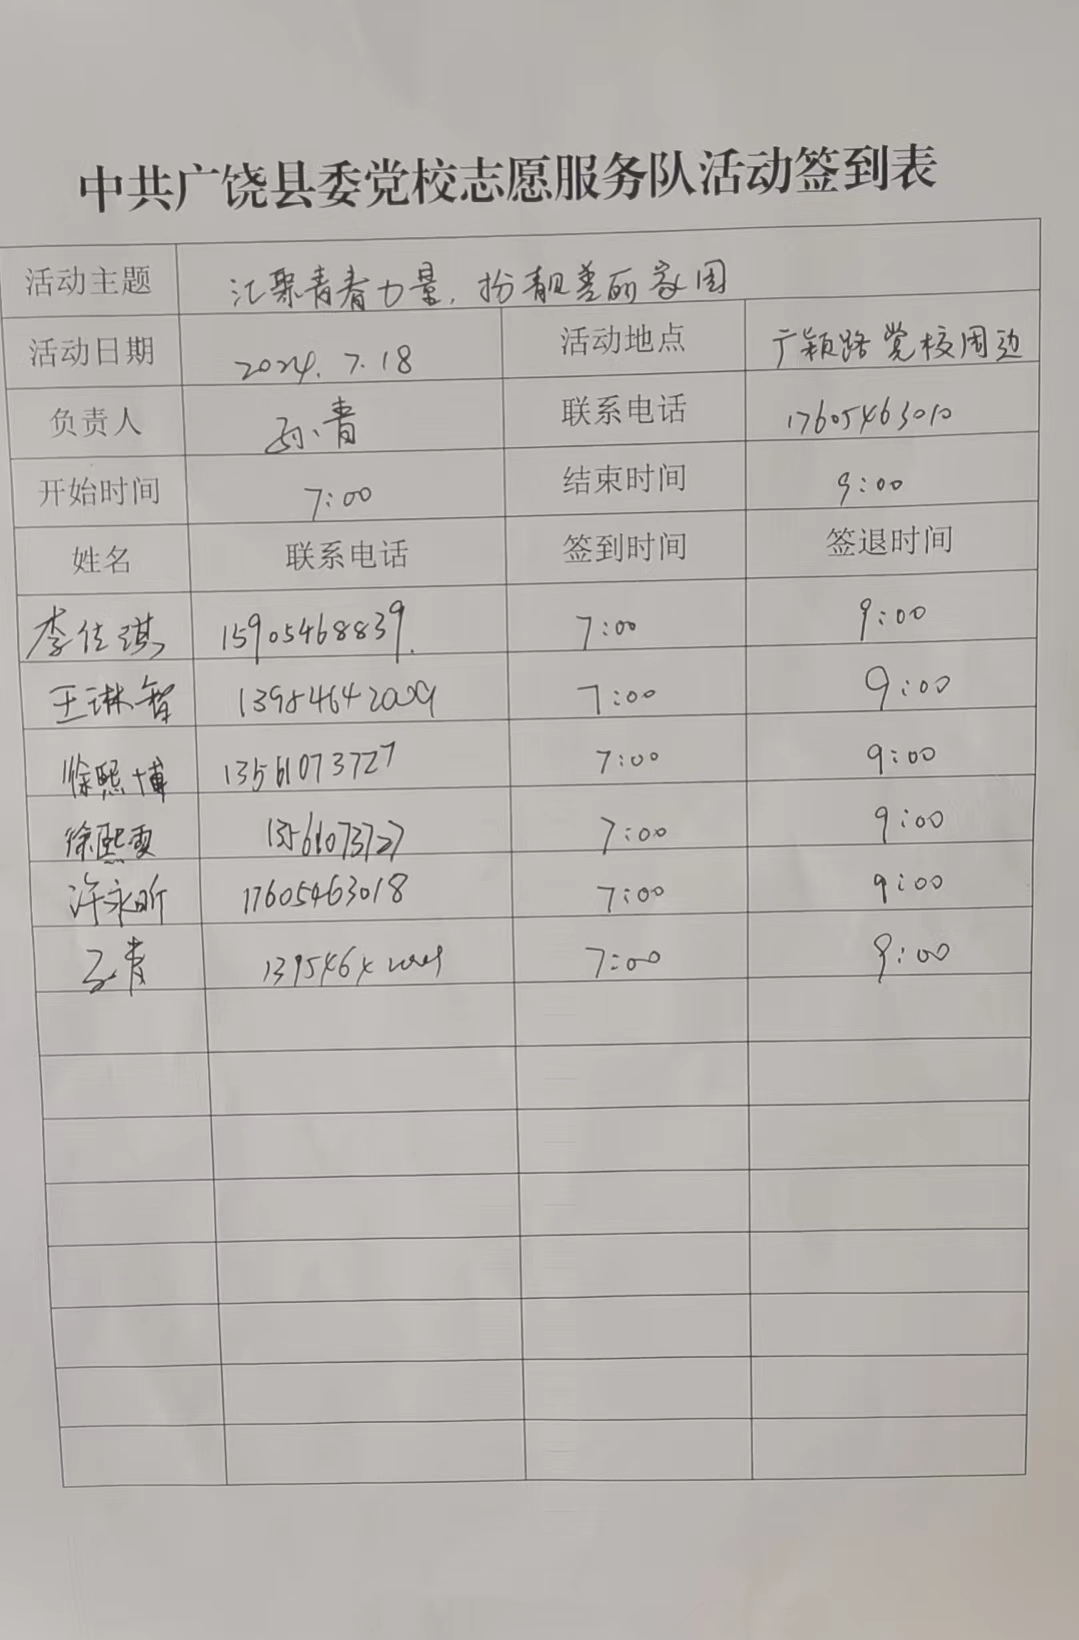 中共广饶县委党校志愿服务队活动签到表
活动主题 汇聚青春力量，扮靓美丽家园
活动日期 2024.7.18 活动地点 广颖路党校周边
负责人 孙青 联系电话 17605463010
开始时间 7:00 结束时间 9:00
姓名 联系电话 签到时间 签退时间
李佳琪 15905468839. 7:00 9:00
王琳智 13954642009 7:00 9:00
徐熙博 13561073727 7:00 9:00
徐熙雯 13561073727 7:00 9:00
许永昕 17605463018 7:00 9:00
7:00 9:00